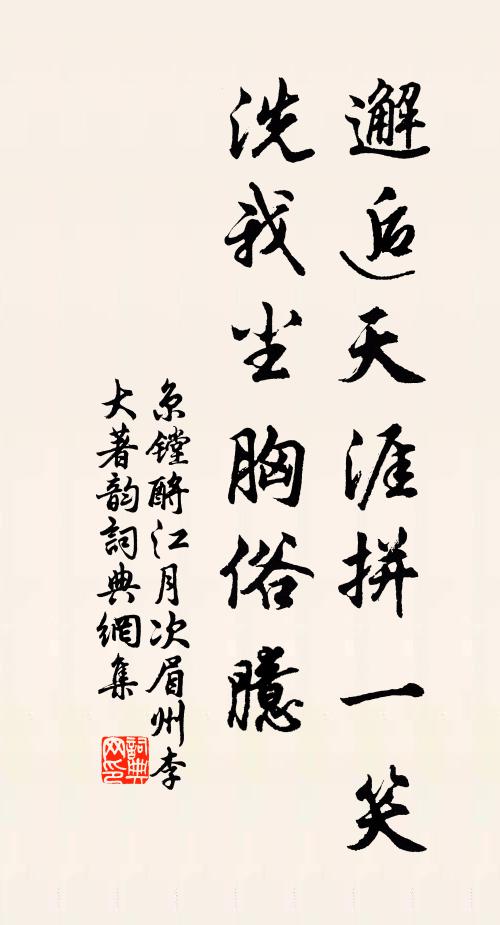 邂逅天涯拼一笑
洗我尘胸俗臆
京镗酹江月次眉州李
大著韵詞典網集
詞典
网印